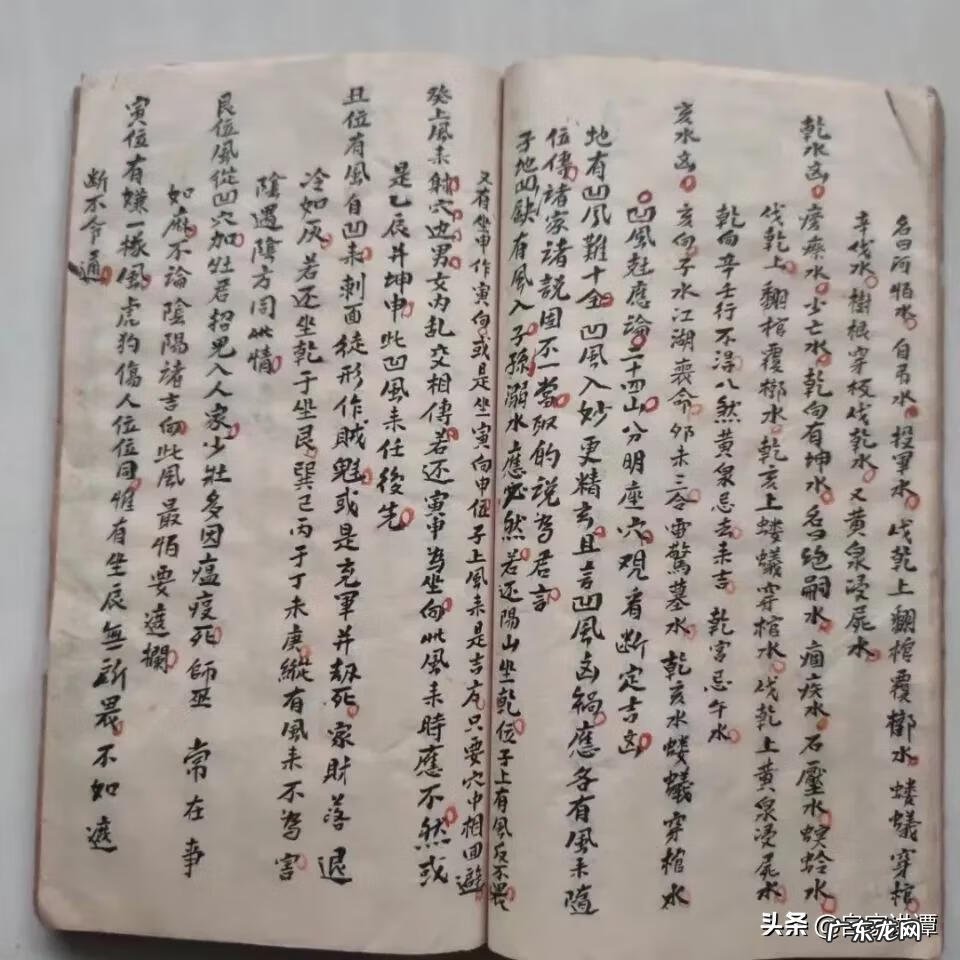 名曰河怕水 自吊水 投軍水 戊乾上翻棺覆槨水 蝼蟻穿棺
辛伐水 樹根穿板伐乾水 又黄泉浸屍水
乾水凶 痨瘵水 少亡水 乾向有坤水 名曰绝嗣水 痼疾水 石壓水 螟蛉水
伐乾上翻棺覆槨水 乾亥上蝼蟻穿棺水 伐乾上黄泉浸屍水
乾向辛壬行不得 八煞黄泉忌去未吉 乾宫忌午水
亥水凶 亥向子水江湖丧命 邜未三合雷驚墓水 乾亥水蝼蟻穿棺水
凹風尅應論 二十四山分明 座穴观看断定吉凶
地有凹風難十全 凹風入妙更精玄 且言凹風凶禍應 各有風未随
位傳 诸家諸説固不一 當取的説為君言
子地凹缺有風入 子孫溺水應必然 若还陽山坐乾位 子上有風反不畏
又有坐申作寅向 或是坐寅向申 但子上風未是吉方 只要穴中相回避
癸上風未射穴边 男女内乱交相傳 若还寅申為坐向 此風未時應不然 或
是乙辰并坤申 此凹風未任後先
丑位有風自凹未 刺面徒形作賊魁 或是充軍并劫死 家財落退
冷如灰 若还坐乾于坐艮 巽己丙于丁未庚 縱有風未不為害
陰遇陰方同此情
艮位風從凹穴加 牡君招鬼入人家 少壯多因瘟疫死 師巫 常在事
如麻 不論陰陽諸吉向 此風最怕要遮攔
寅位有嫌一樣風 虎狗傷人位位同 惟有坐辰無所畏 不如遮
断不令通
头条 @名家讲谭
广东龙网